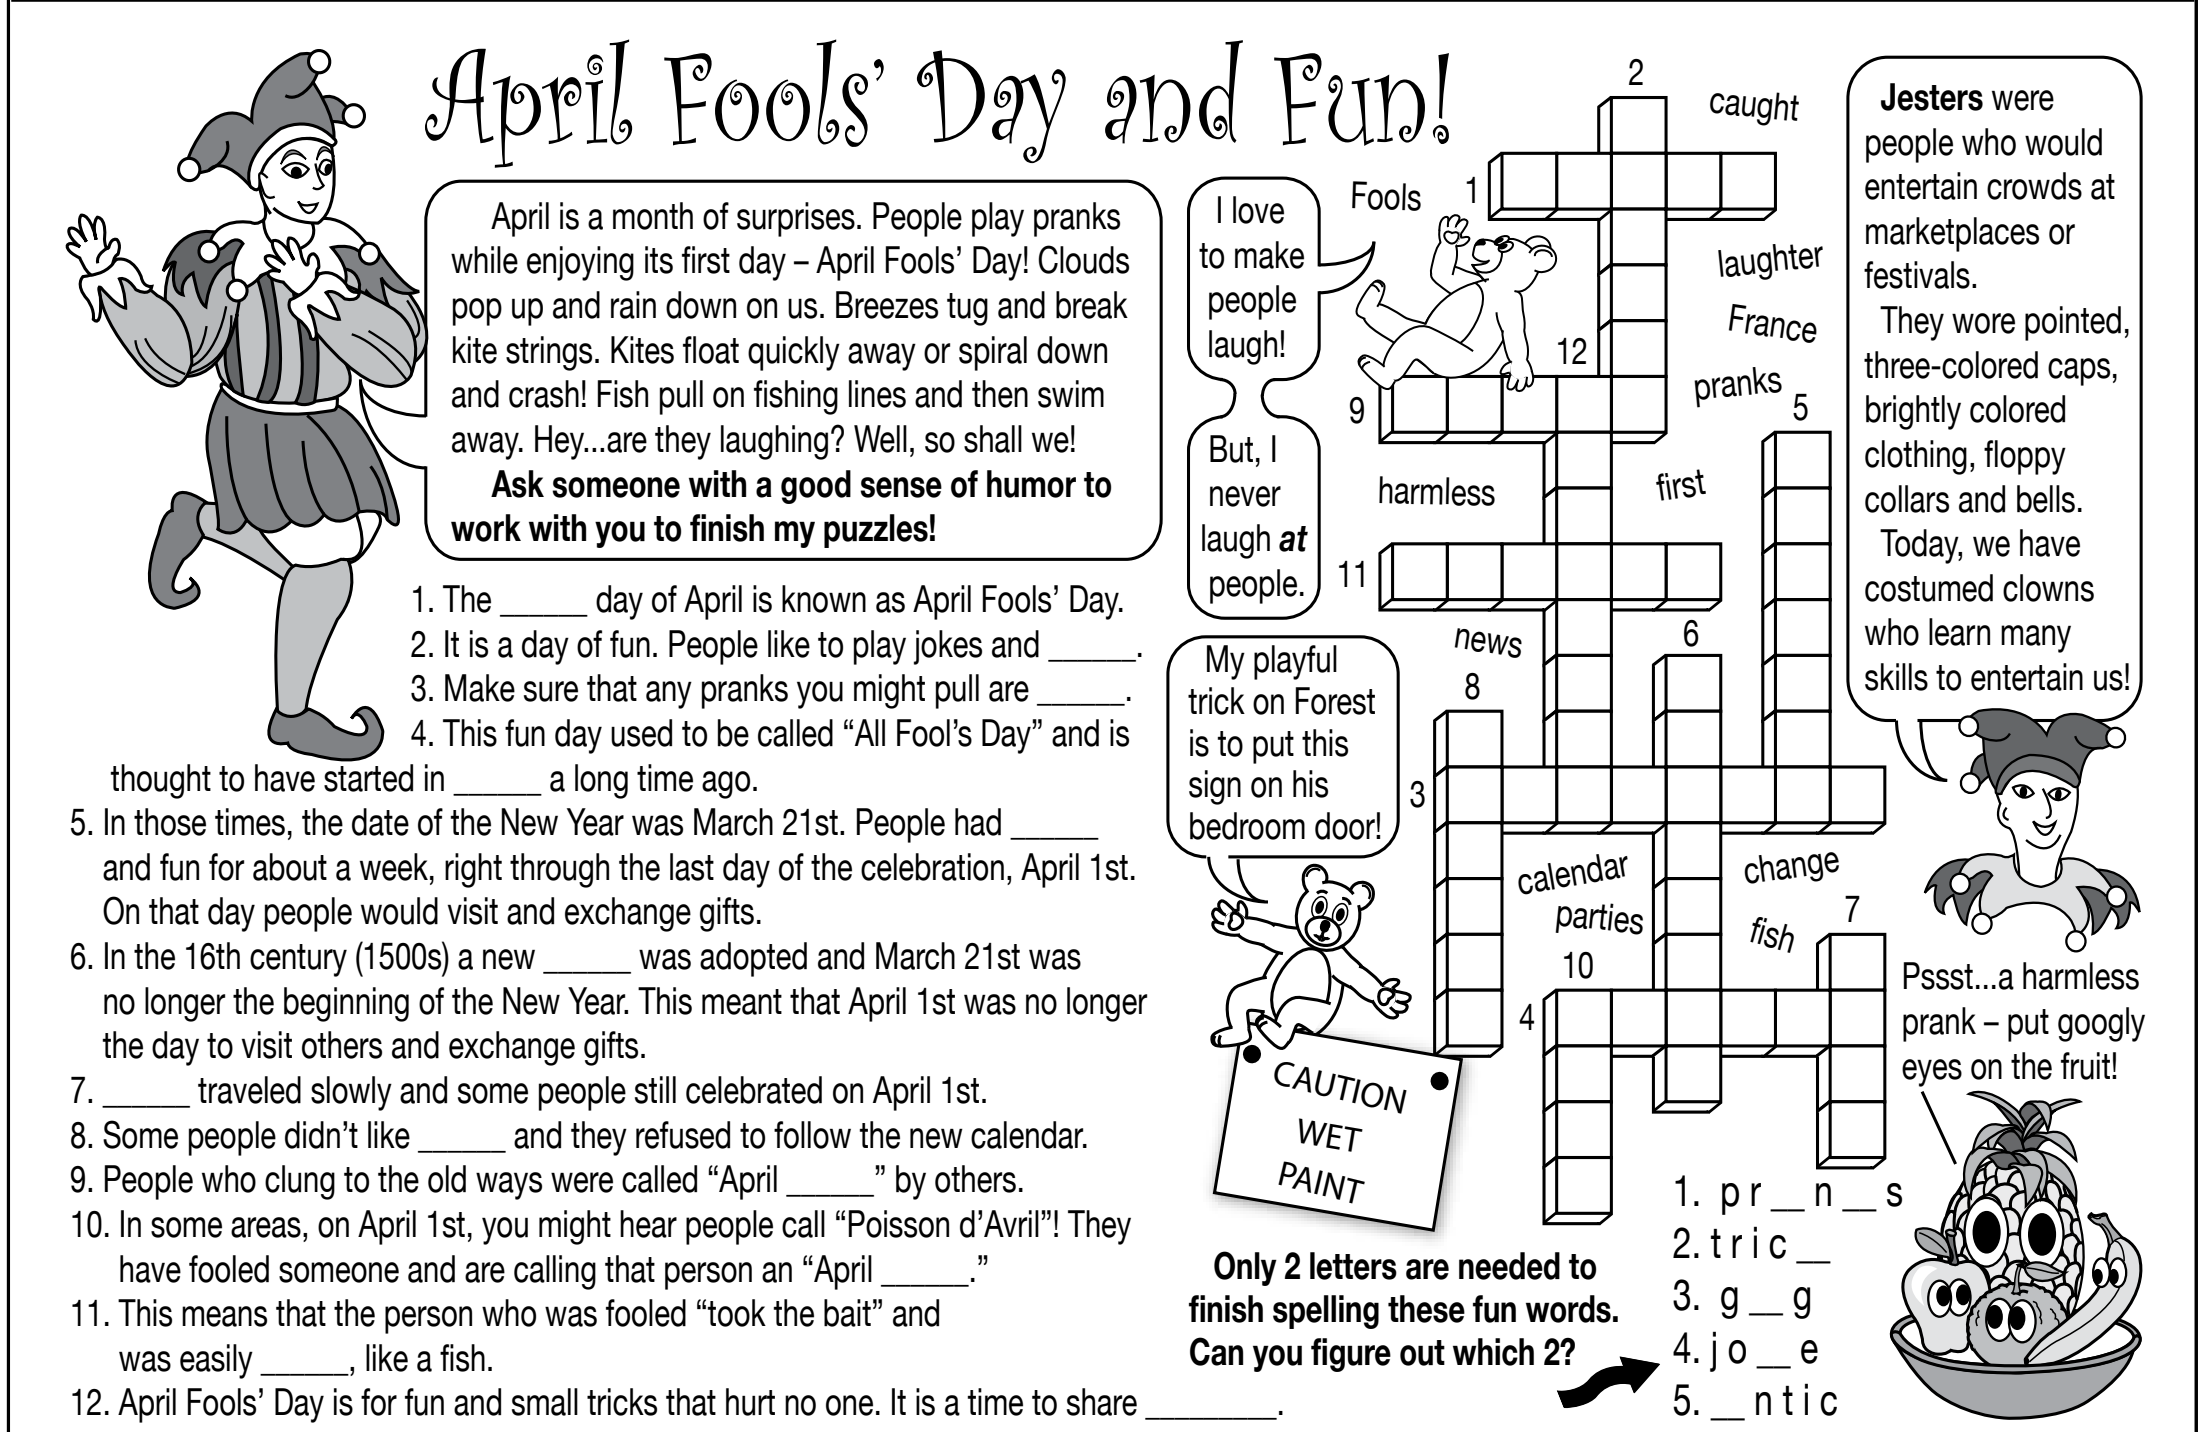 April Fools’ Day and Fun!
April is a month of surprises. People play pranks
while enjoying its first day – April Fools’ Day! Clouds
pop up and rain down on us. Breezes tug and break
kite strings. Kites float quickly away or spiral down
and crash! Fish pull on fishing lines and then swim
away. Hey...are they laughing? Well, so shall we!
Ask someone with a good sense of humor to
work with you to finish my puzzles!
1. The ______ day of April is known as April Fools’ Day.
2. It is a day of fun. People like to play jokes and ______.
3. Make sure that any pranks you might pull are ______.
4. This fun day used to be called “All Fool’s Day” and is
thought to have started in ______ a long time ago.
5. In those times, the date of the New Year was March 21st. People had ______
and fun for about a week, right through the last day of the celebration, April 1st.
On that day people would visit and exchange gifts.
6. In the 16th century (1500s) a new ______ was adopted and March 21st was
no longer the beginning of the New Year. This meant that April 1st was no longer
the day to visit others and exchange gifts.
7. ______ traveled slowly and some people still celebrated on April 1st.
8. Some people didn’t like ______ and they refused to follow the new calendar.
9. People who clung to the old ways were called “April ______” by others.
10. In some areas, on April 1st, you might hear people call “Poisson d’Avril”! They
have fooled someone and are calling that person an “April ______.”
11. This means that the person who was fooled “took the bait” and
was easily ______, like a fish.
12. April Fools’ Day is for fun and small tricks that hurt no one. It is a time to share _________.
I love
to make
people
laugh!
But, I
never
laugh at
people.
My playful
trick on Forest
is to put this
sign on his
bedroom door!
CAUTION
WET
PAINT
2
caught
Fools
1
laughter
France
12
pranks
9
5
harmless
first
11
news
6
8
3
calendar
change
parties
7
fish
10
4
Jesters were
people who would
entertain crowds at
marketplaces or
festivals.
They wore pointed,
three-colored caps,
brightly colored
clothing, floppy
collars and bells.
Today, we have
costumed clowns
who learn many
skills to entertain us!
Pssst...a harmless
prank – put googly
eyes on the fruit!
Only 2 letters are needed to
finish spelling these fun words.
Can you figure out which 2?
1. p r __ n __ s
2. t r i c __
3. g __ g
4. j o __ e
5. __ n t i c